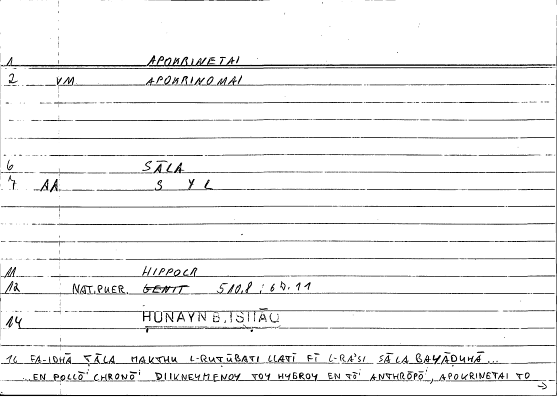 1 APOKRINETAI
2 VM APOKRINOMAI
6 SĀLA
7 AA S Y L
11 HIPPOCR
12 NAT.PUER. GENIT 510,8 ; 67.11
14 HUNAYN B. ISḤĀQ
16 FA-IDHĀ ṬĀLA MAKTHU L-RUṬŪBATI LLATĪ FĪ L-RA'SI SĀLA BAYĀḌUHĀ...
...EN POLLŌ CHRONŌ DIIKNEYMENOY TOY HYGROY EN TŌ ANTHRŌPŌ, APOKRINETAI TO
→